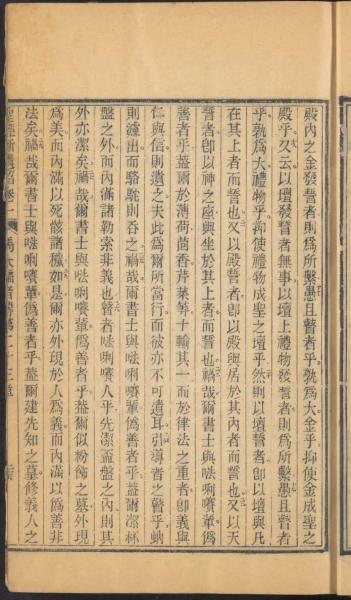 殿內之金發誓者則爲所繫愚且瞽者乎孰爲大金乎抑使金成聖之
殿乎又云以壇發誓者無事以壇上禮物發誓者則爲所繫愚且瞽者
乎孰爲大禮物乎抑使禮物成聖之壇乎然則以壇誓者卽以壇與凡
在其上者而誓也又以殿誓者卽以殿與居於其內者而誓也又以天
誓者卽以神之座與坐於其上者而誓也禍哉爾書士與㗭唎㘔輩僞
善者乎蓋爾於薄荷茴香芹菜等十輸其一而於律法之重者卽義與
仁與信則遺之夫此爲爾所當行而彼亦不可遺耳引導者之瞽乎蚋
則濾出而駱駝則吞之禍哉爾書士與㗭唎㘔輩僞善者乎蓋爾潔杯
盤之外而內滿諸勒索非義也瞽者㗭唎㘔人乎先潔盃盤之內則其
外亦潔矣禍哉爾書士與㗭唎㘔輩僞善者乎蓋爾似粉飾之墓外現
爲美而內滿以死骸諸穢如是爾亦外現於人爲義而內滿以僞善非
法矣禍哉爾書士與㗭唎㘔輩僞善者乎蓋爾建先知之墓修義人之
馬太福音書第二十三章